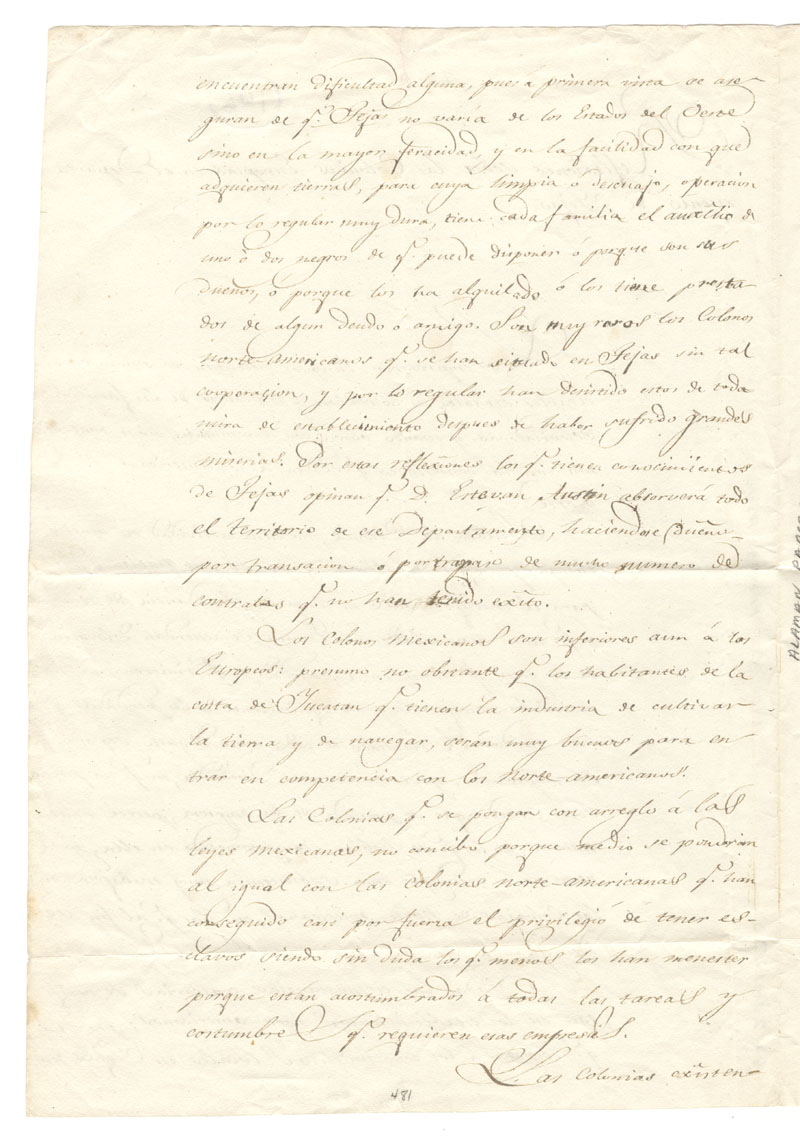 encuentran dificultad alguna, pues á primera vista se ase-
guran de q.e Tejas no varía de los Estados del Oeste
sino en la mayor feracidad, y en la facilidad con que
adquieren tierras, para cuya limpia ó desenajo, operacion
por lo regular muy dura, tiene cada familia el auxilio de
uno ó dos negros de q.e puede disponer ó porque son sus
dueños, o porque los ha alquilado ó los tiene presta-
dos de algun deudo ó amigo. Son muy raros los Colonos
norte-americanos q.e se han situado en Tejas sin tal
cooperacion, y por lo regular han desistido estos de toda
mira de establecimiento despues de haber sufrido grandes
miserias. Por estas reflexiones los q.e tienen conocimientos
de Tejas opinan q.e D. Estevan Austin absorverá todo
el territorio de ese Departamento, haciendose Dueño
por transacion ó por de mucho numero de
contratas q.e no han tenido exîto.
Los Colonos Mexicanos son inferiores aun á los
Europeos: presumo no obstante q.e los habitantes de la
costa de Yucatan q.e tienen la industria de cultivar
la tierra y de navegar, serán muy buenos para en
trar en competencia con los Norte-americanos.
Las Colonias q.e se pongan con arreglo á las
leyes Mexicanas, no concibo porque medio se pondrian
al igual con las Colonias norte-americanas q.e han
conseguido casi por fuerza el privilegio de tener es-
clavos siendo sin duda los q.e menos los han menester
porque están acostumbrados á todas las tareas y
costumbres q.e requieren esas empresas.
Las Colonias exîsten-
481
ALAMAN PAPERS